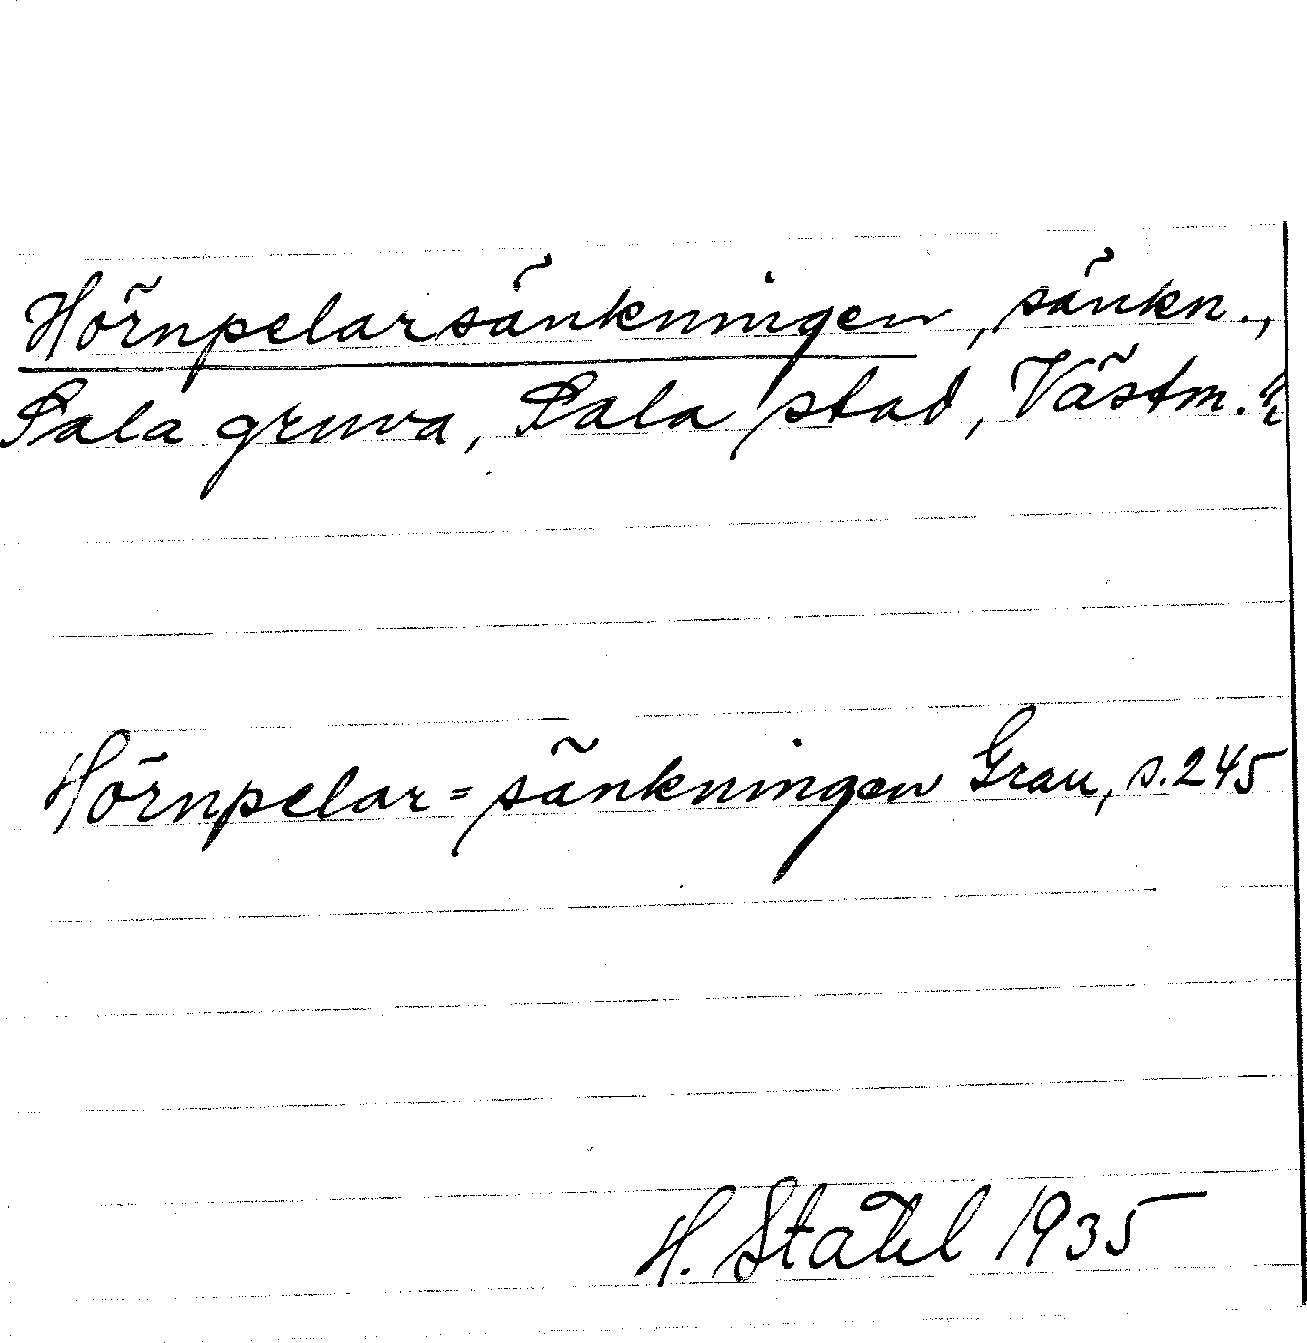 Hörnpelarsänkningen, sänkn.,
Sala gruva, Sala stad, Västm.
Hörnpelar=sänkningen Grau, s.245
H. Ståhl 1935